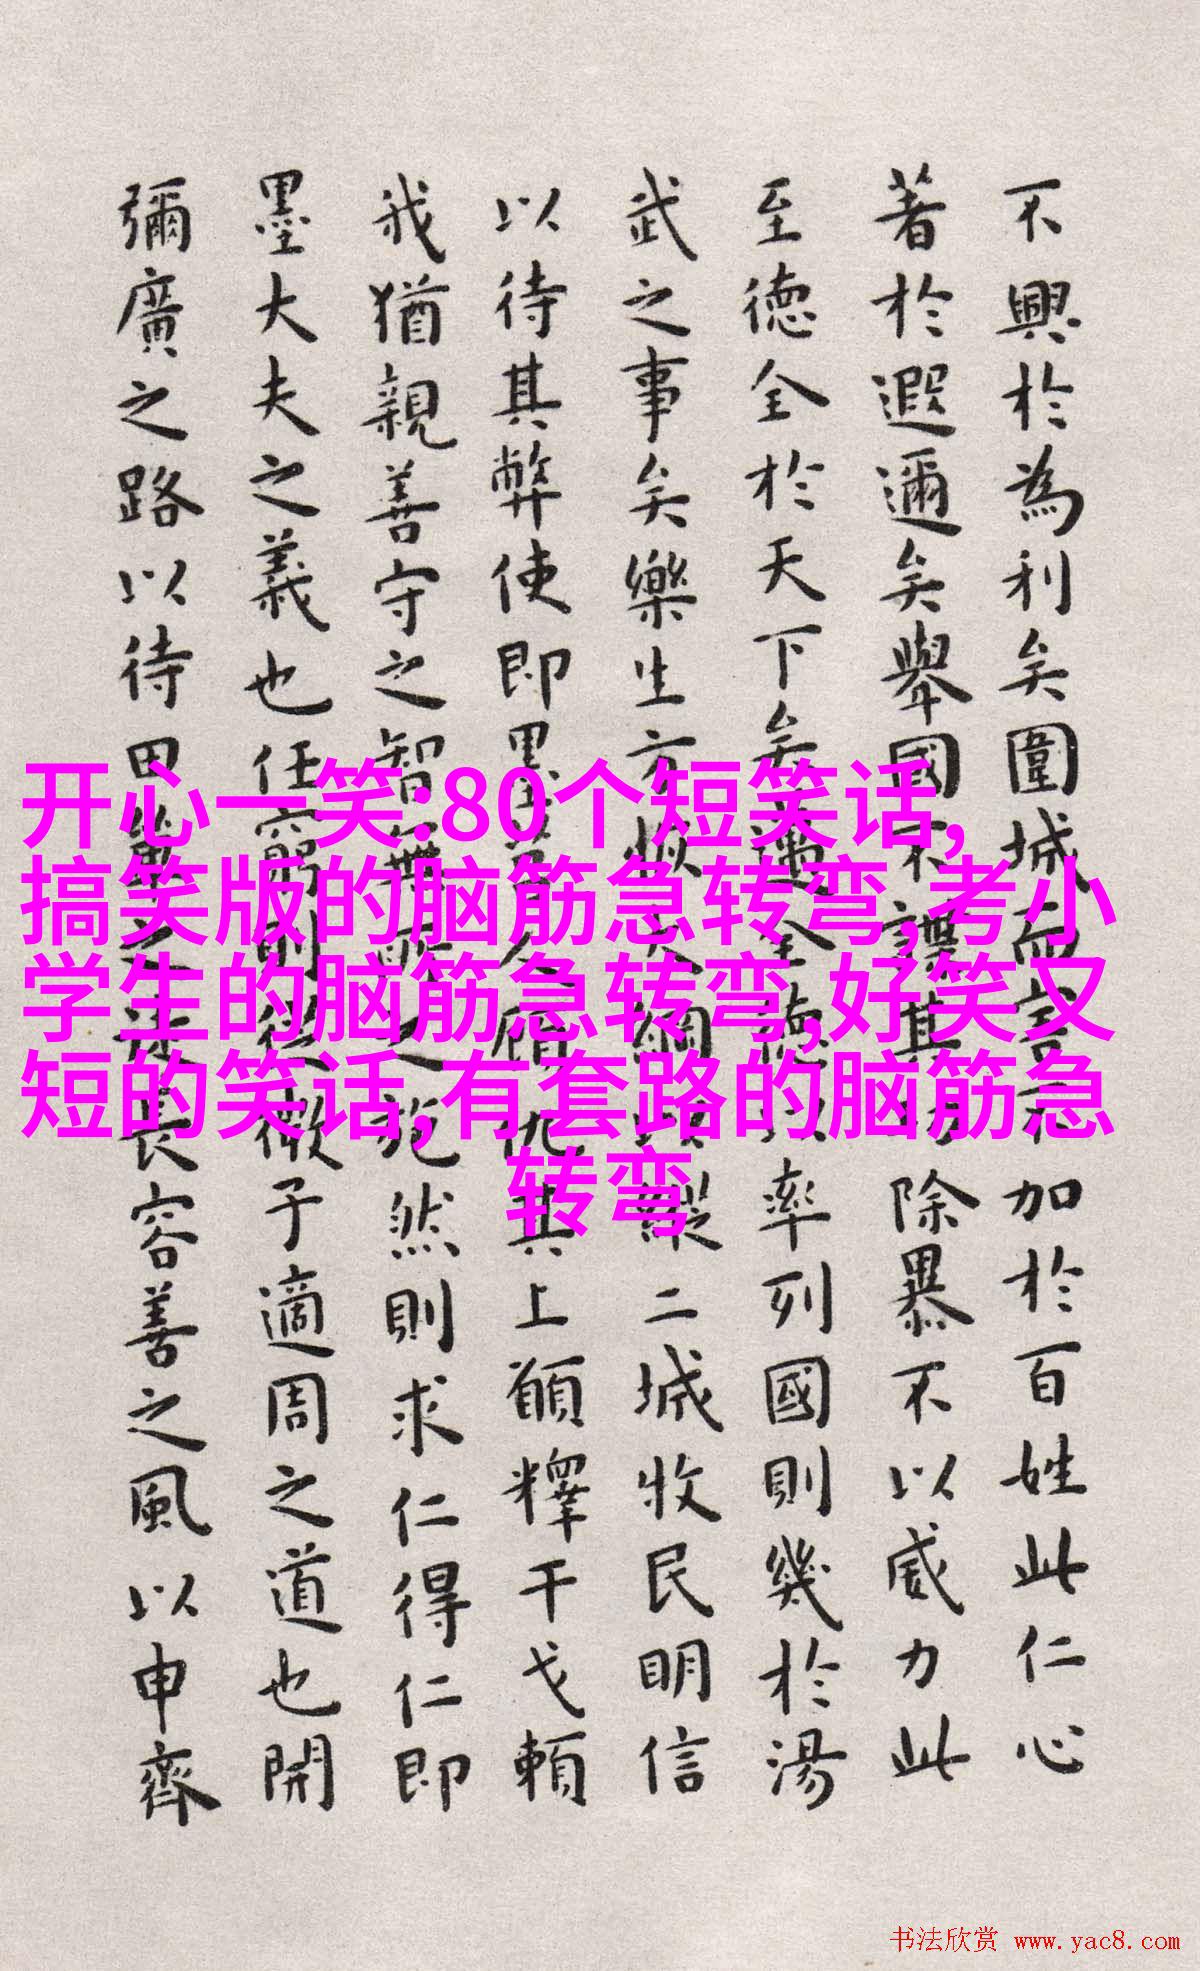 不興於為利矣圍城而害不加於百姓此仁心
著於遐邇矣舉國不謀其功除暴不以威力此
至德全於天下矣邁全德以率列國則幾於湯
武之事矣樂生方恢大綱以縱二城收民明信
以待其弊使即墨莒人顧仇其上願釋干戈賴
我猶親善守之智無所之施然則求仁得仁即
墨大夫之義也任窮則從微子適周之道也開
彌廣之路以待田單之徒長容善之風以申齊
开心一笑:80个短笑话,
搞笑版的脑筋急转弯,考小
学生的脑筋急转弯,好笑又
短的笑话,有套路的脑筋急
转弯
书法欣赏 www.yac8.com